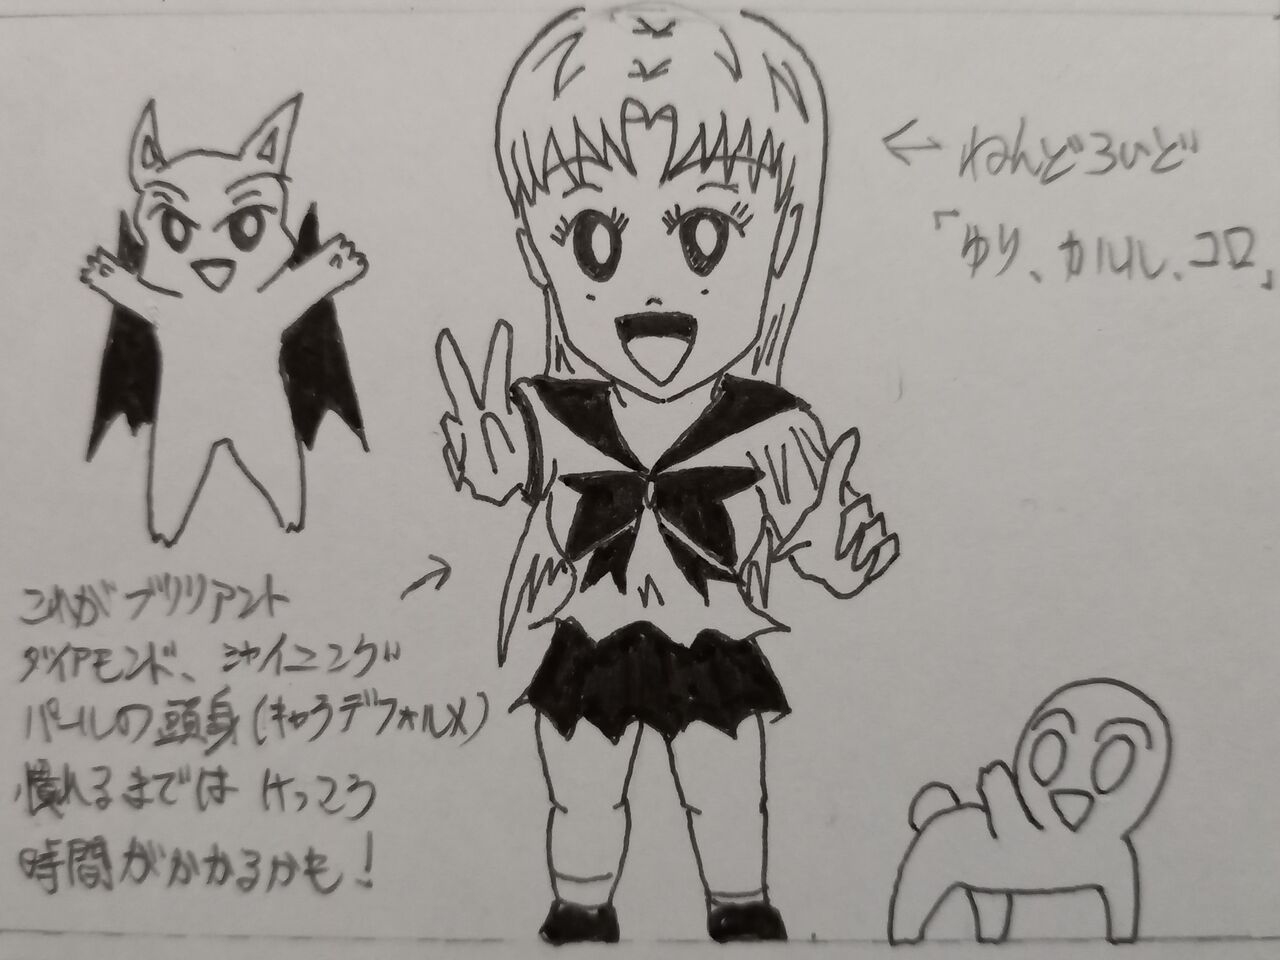 ← ねんどろいど
「ゆり、カルル、コロ」
これがブリリアント →
ダイアモンド、シャイニング
パールの頭身(キャラデフォルメ)
慣れるまでは けっこう
時間がかかるかも!